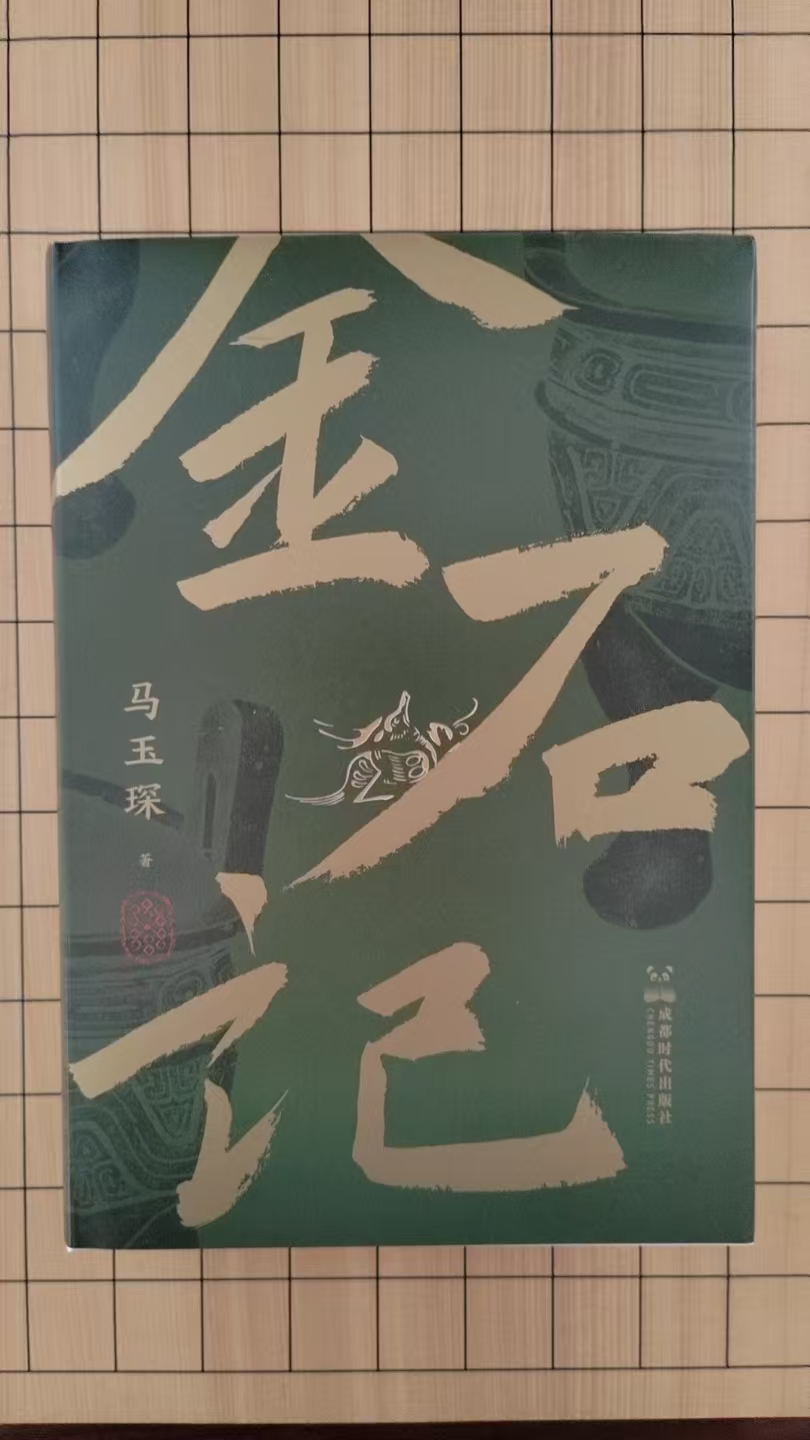 金石记
马玉琛 著
成都时代出版社
CHENGDU TIMES PRESS